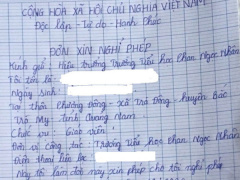 CỘNG HÒA XÃ HỘI CHỦ NGHĨA VIỆT NAM
Độc lập - Tự do - Hạnh Phúc
ĐƠN XIN NGHỈ PHÉP
Kính gửi: Hiệu trưởng Trường Tiểu học Phan Ngọc Nhân
Tôi tên là:
Ngày sinh:
Tại thôn Phương Đông - xã Trà Đông - huyện Bắc
Trà My tỉnh Quảng Nam.
Chức vụ: Giáo viên
Đơn vị công tác: Trường Tiểu học Phan Ngọc Nhân
Điện thoại liên hệ:
Nay tôi làm đơn này xin phép cho tôi nghỉ phép